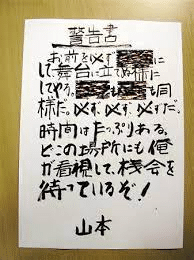 警告書
お前を必ず
して舞台に立てぬ様に
してやる。も同
様だ。必ず、必ず、必ずだ。
時間はたっぷりある。
どこの場所にも俺
が看視して、桟会を
待っているぞ!
山本